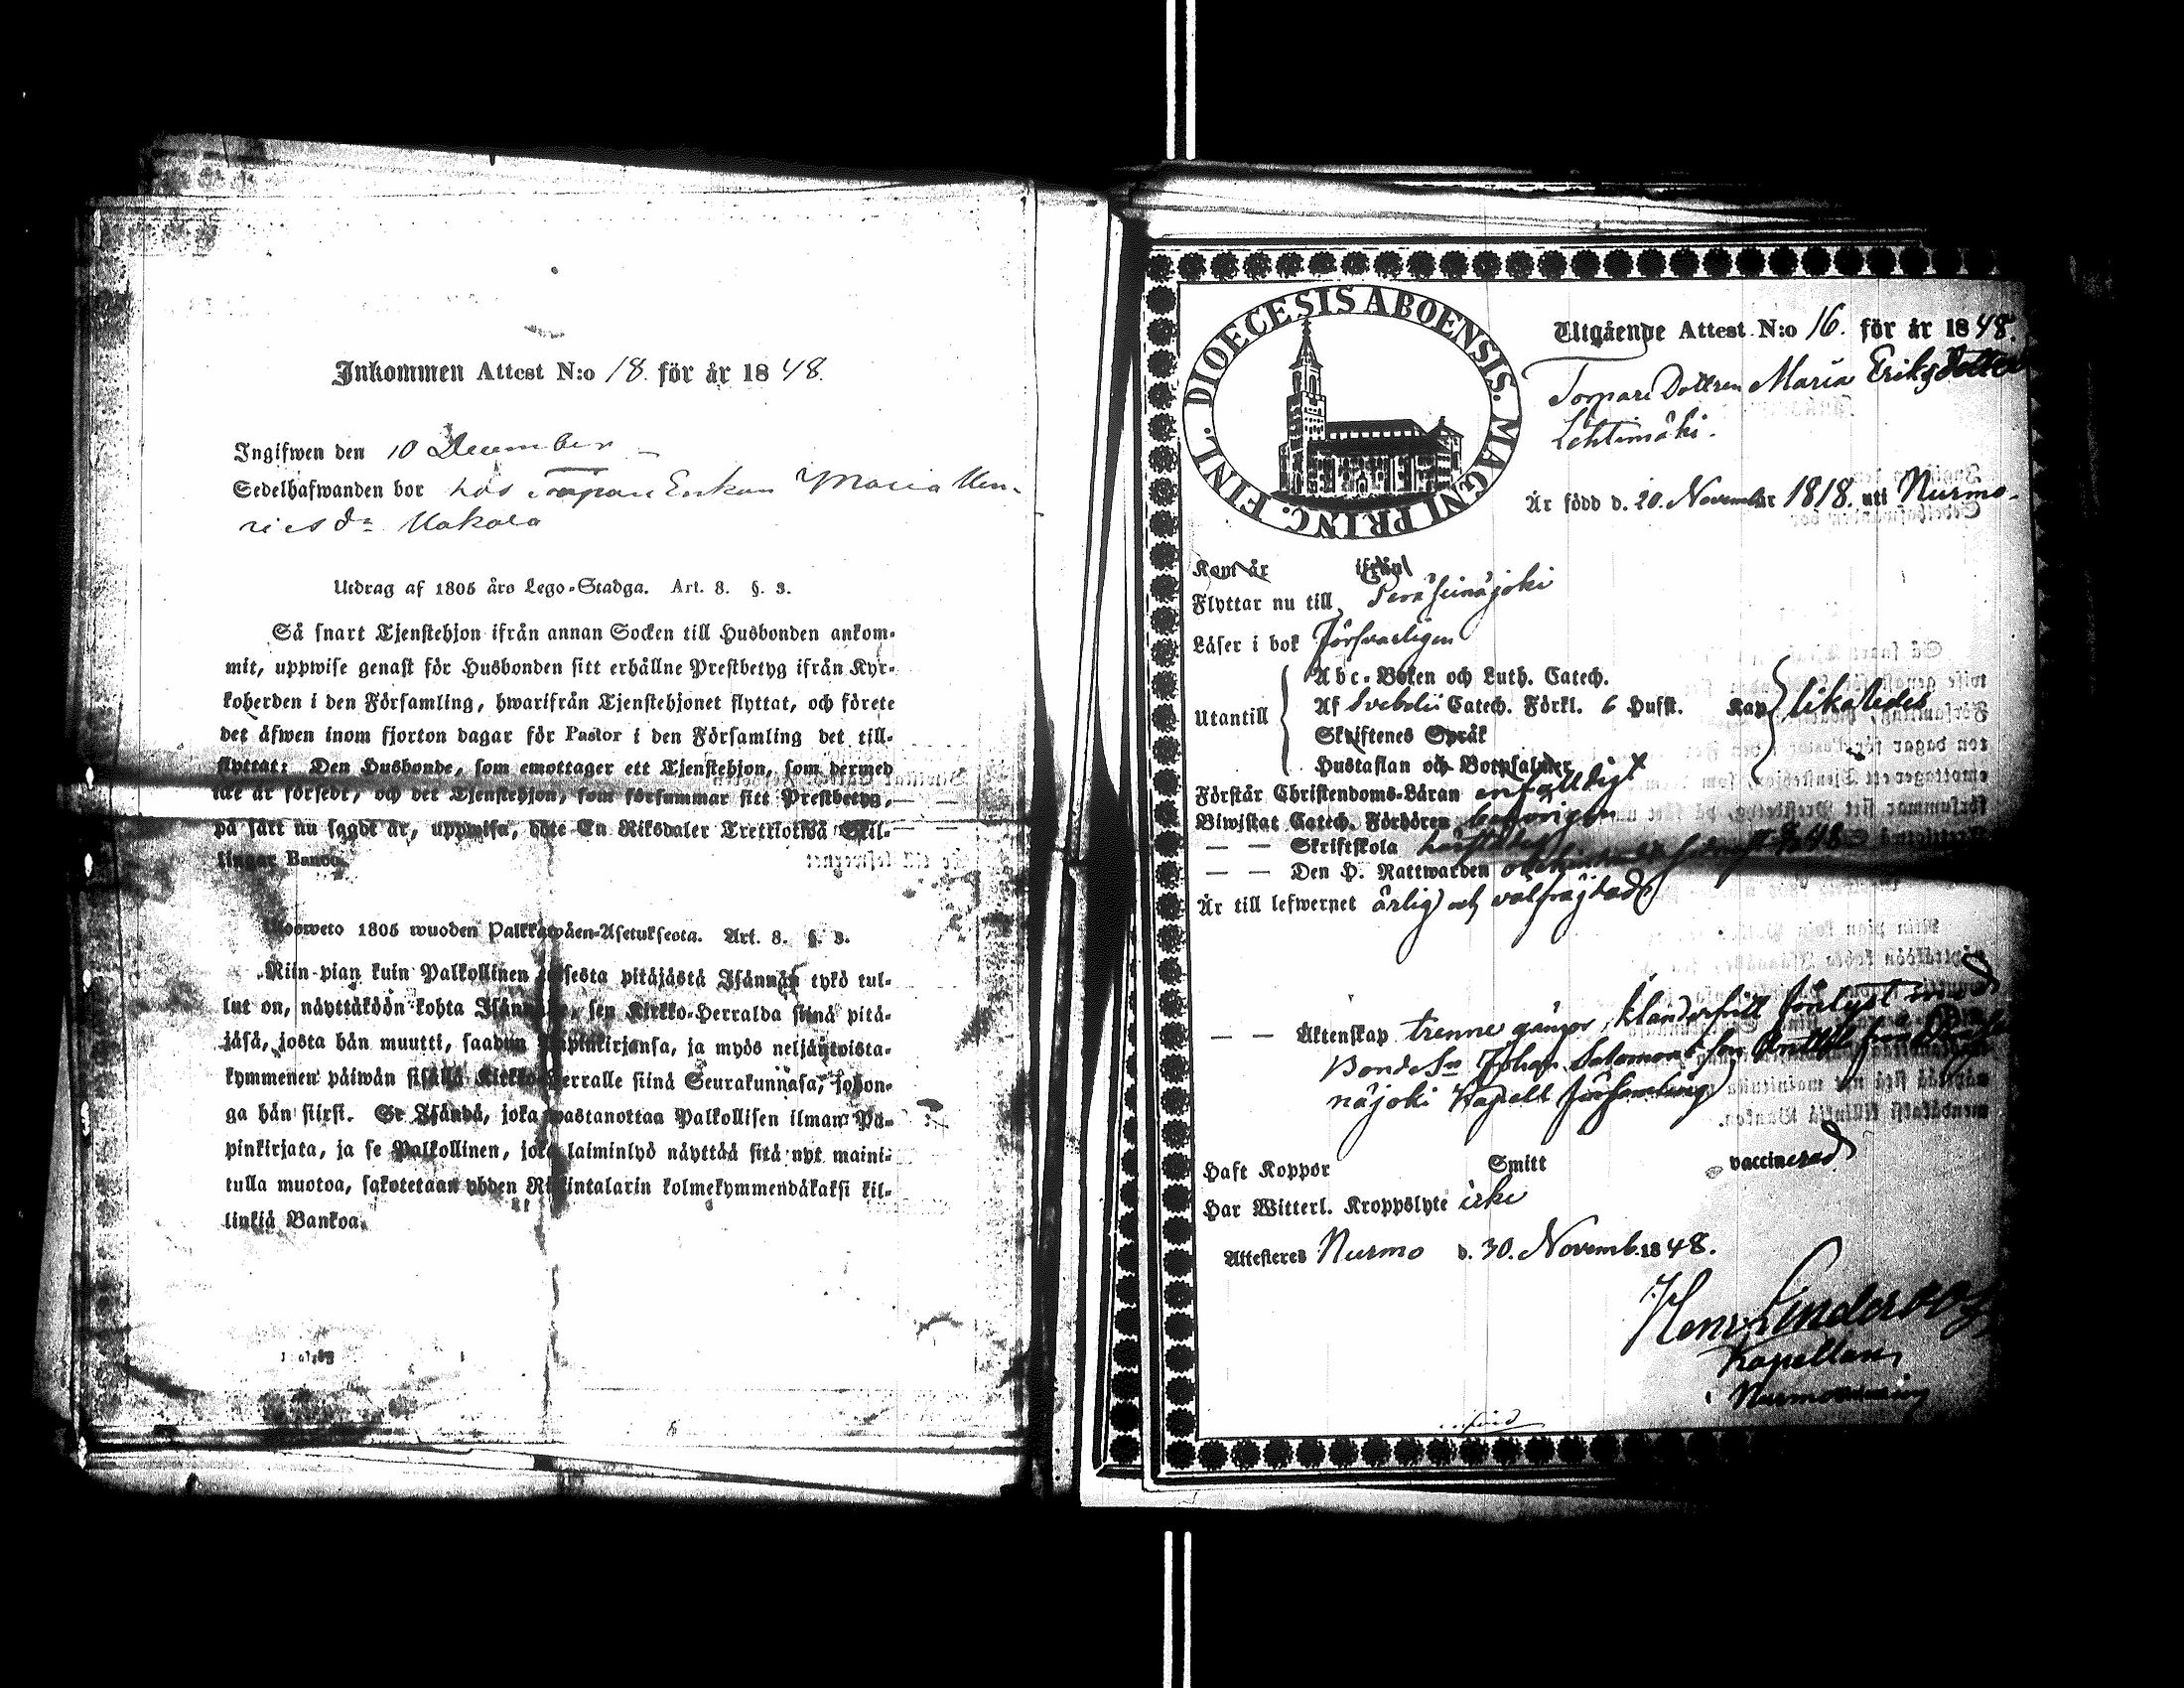 Inkommen Attest N:o 18. för år 1848.
Ingifwen den 10 December
Sedelhafwanden bor hos Torpare Enkan Maria Hen-
ricsdr Kakola
Utdrag af 1805 års Lego-Stadga. Art. 8. §. 3.
Så snart Tjenstehjon ifrån annan Socken till Husbonden ankom-
mit, uppwise genast för Husbonden sitt erhållne Prestbetyg ifrån Kyr-
koherden i den Församling, hwarifrån Tjenstehjonet flyttat, och förete
det åfwen inom fjorton dagar för Pastor i den Församling det till-
flyttat: Den Husbonde, som emottager ett Tjenstehjon, som dermed
icke är försedt, och det Tjenstehjon, som försummar sitt Prestbetyg,
på sätt nu sagdt är, uppwisa, böte En Riksdaler Trettiotwå Skil-
lingar Banco.
Uloosweto 1805 wuoden Palkkawåen-Asetuksesta. Art. 8. §. 3.
Niin pian kuin Palkollinen toisesta pitäjästä Isännän tykö tul-
lut on, näyttäköön kohta Isännälle, sen Kirkko-Herralda siinä pitä-
jäsä, josta hän muutti, saadun Papinkirjansa, ja myös neljäntoista-
kymmenen päiwän sisällä Kirkko-Herralle siinä Seurakunnasa, johon-
ga hän siirsi. Se Isändä, joka wastanottaa Palkollisen ilman Pa-
pinkirjata, ja se Palkollinen, joka laiminlyö näyttää sitä nyt maini-
tulla muotoa, sakotetaan yhden Riksintalarin kolmekymmendäkaksi kil-
linkiä Bankoa.
DIOECESIS ABOENSIS. MAGNI PRINC. FINL.
Utgående Attest N:o 16. för år 1848.
Torpare Dottren Maria Eriks Dotter
Lehtimäki.
Är född d. 20. November 1818. uti Nurmo.
Kom år ifrån
Flyttar nu till Peräseinäjoki
Läser i bok försvarligen
Utantill
Abc-Boken och Luth. Catech.
Af Svebelii Catech. Förkl. 6 Hufst. Kap likaledes
Skriftenes Språk
Hustaflan och Botpsalmer
Förstår Christendoms-Läran enfalldigt
Biwistat Catech. Förhören behörigen
— — Skriftskola
— — Den H. Nattwarden
Är till lefwernet ärlig och välfräjdad
— — Äktenskap trenne gånger klanderfritt förlyst med
Bonde Sn Johan Salomonsson
näjoki Kapell församling
Haft Koppor Smitt vaccinerad
Har Witterl. Kroppslyte icke
Attesteres Nurmo d. 30. Novemb. 1848.
Henr. Linderoos
Kapellan
i Nurmo